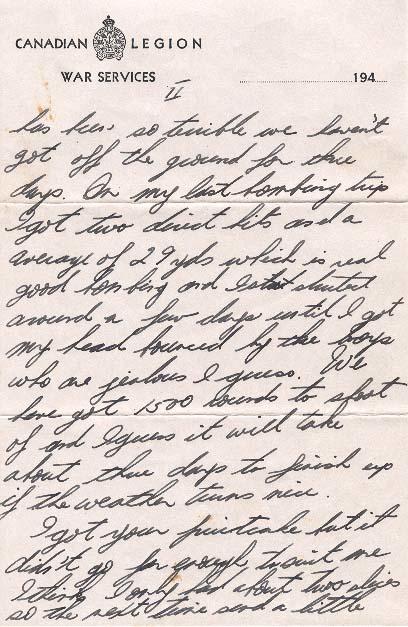 CANADIAN LEGION
WAR SERVICES
194
II
has been so terrible we haven't
got off the ground for three
days. On my last bombing trip
I got two direct hits and a
average of 29 yds which is real
good bombing and I strutted
around a few days until I got
my head bounced by the boys
who are jealous I guess. We
have got 1500 rounds to shoot
of and I guess it will take
about three days to finish up
if the weather turns nice.
I got your fruitcake but it
didn't go far enough to suit me
I think I only had about two slices
so the next time send a little